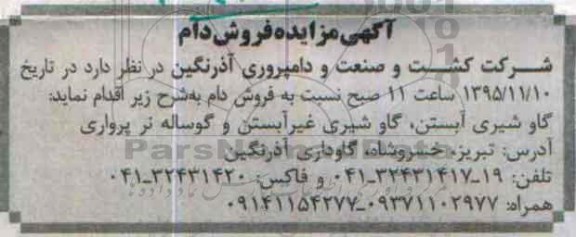 آگهی مزایده فروش دام
شرکت کشت و صنعت و دامپروری آذرنگین در نظر دارد در تاریخ
۱۳۹۵/۱۱/۱۰ ساعت ۱۱ صبح نسبت به فروش دام به‌شرح زیر اقدام نماید:
گاو شیری آبستن، گاو شیری غیرآبستن و گوساله نر پرواری
آدرس: تبریز، خسروشاه، گاوداری آذرنگین
تلفن: ۱۹-۰۴۱-۳۲۴۳۱۴۱۷ و فاکس: ۳۲۴۳۱۴۲۰-۰۴۱
همراه: ۰۹۳۷۱۱۰۲۹۷۷-۰۹۱۴۱۱۵۴۲۷۷